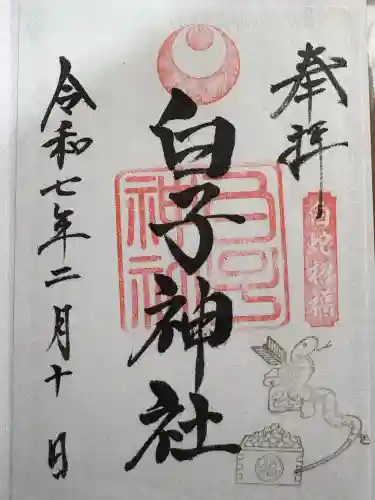 奉拝
白蛇招福
白子神社
令和七年二月十日